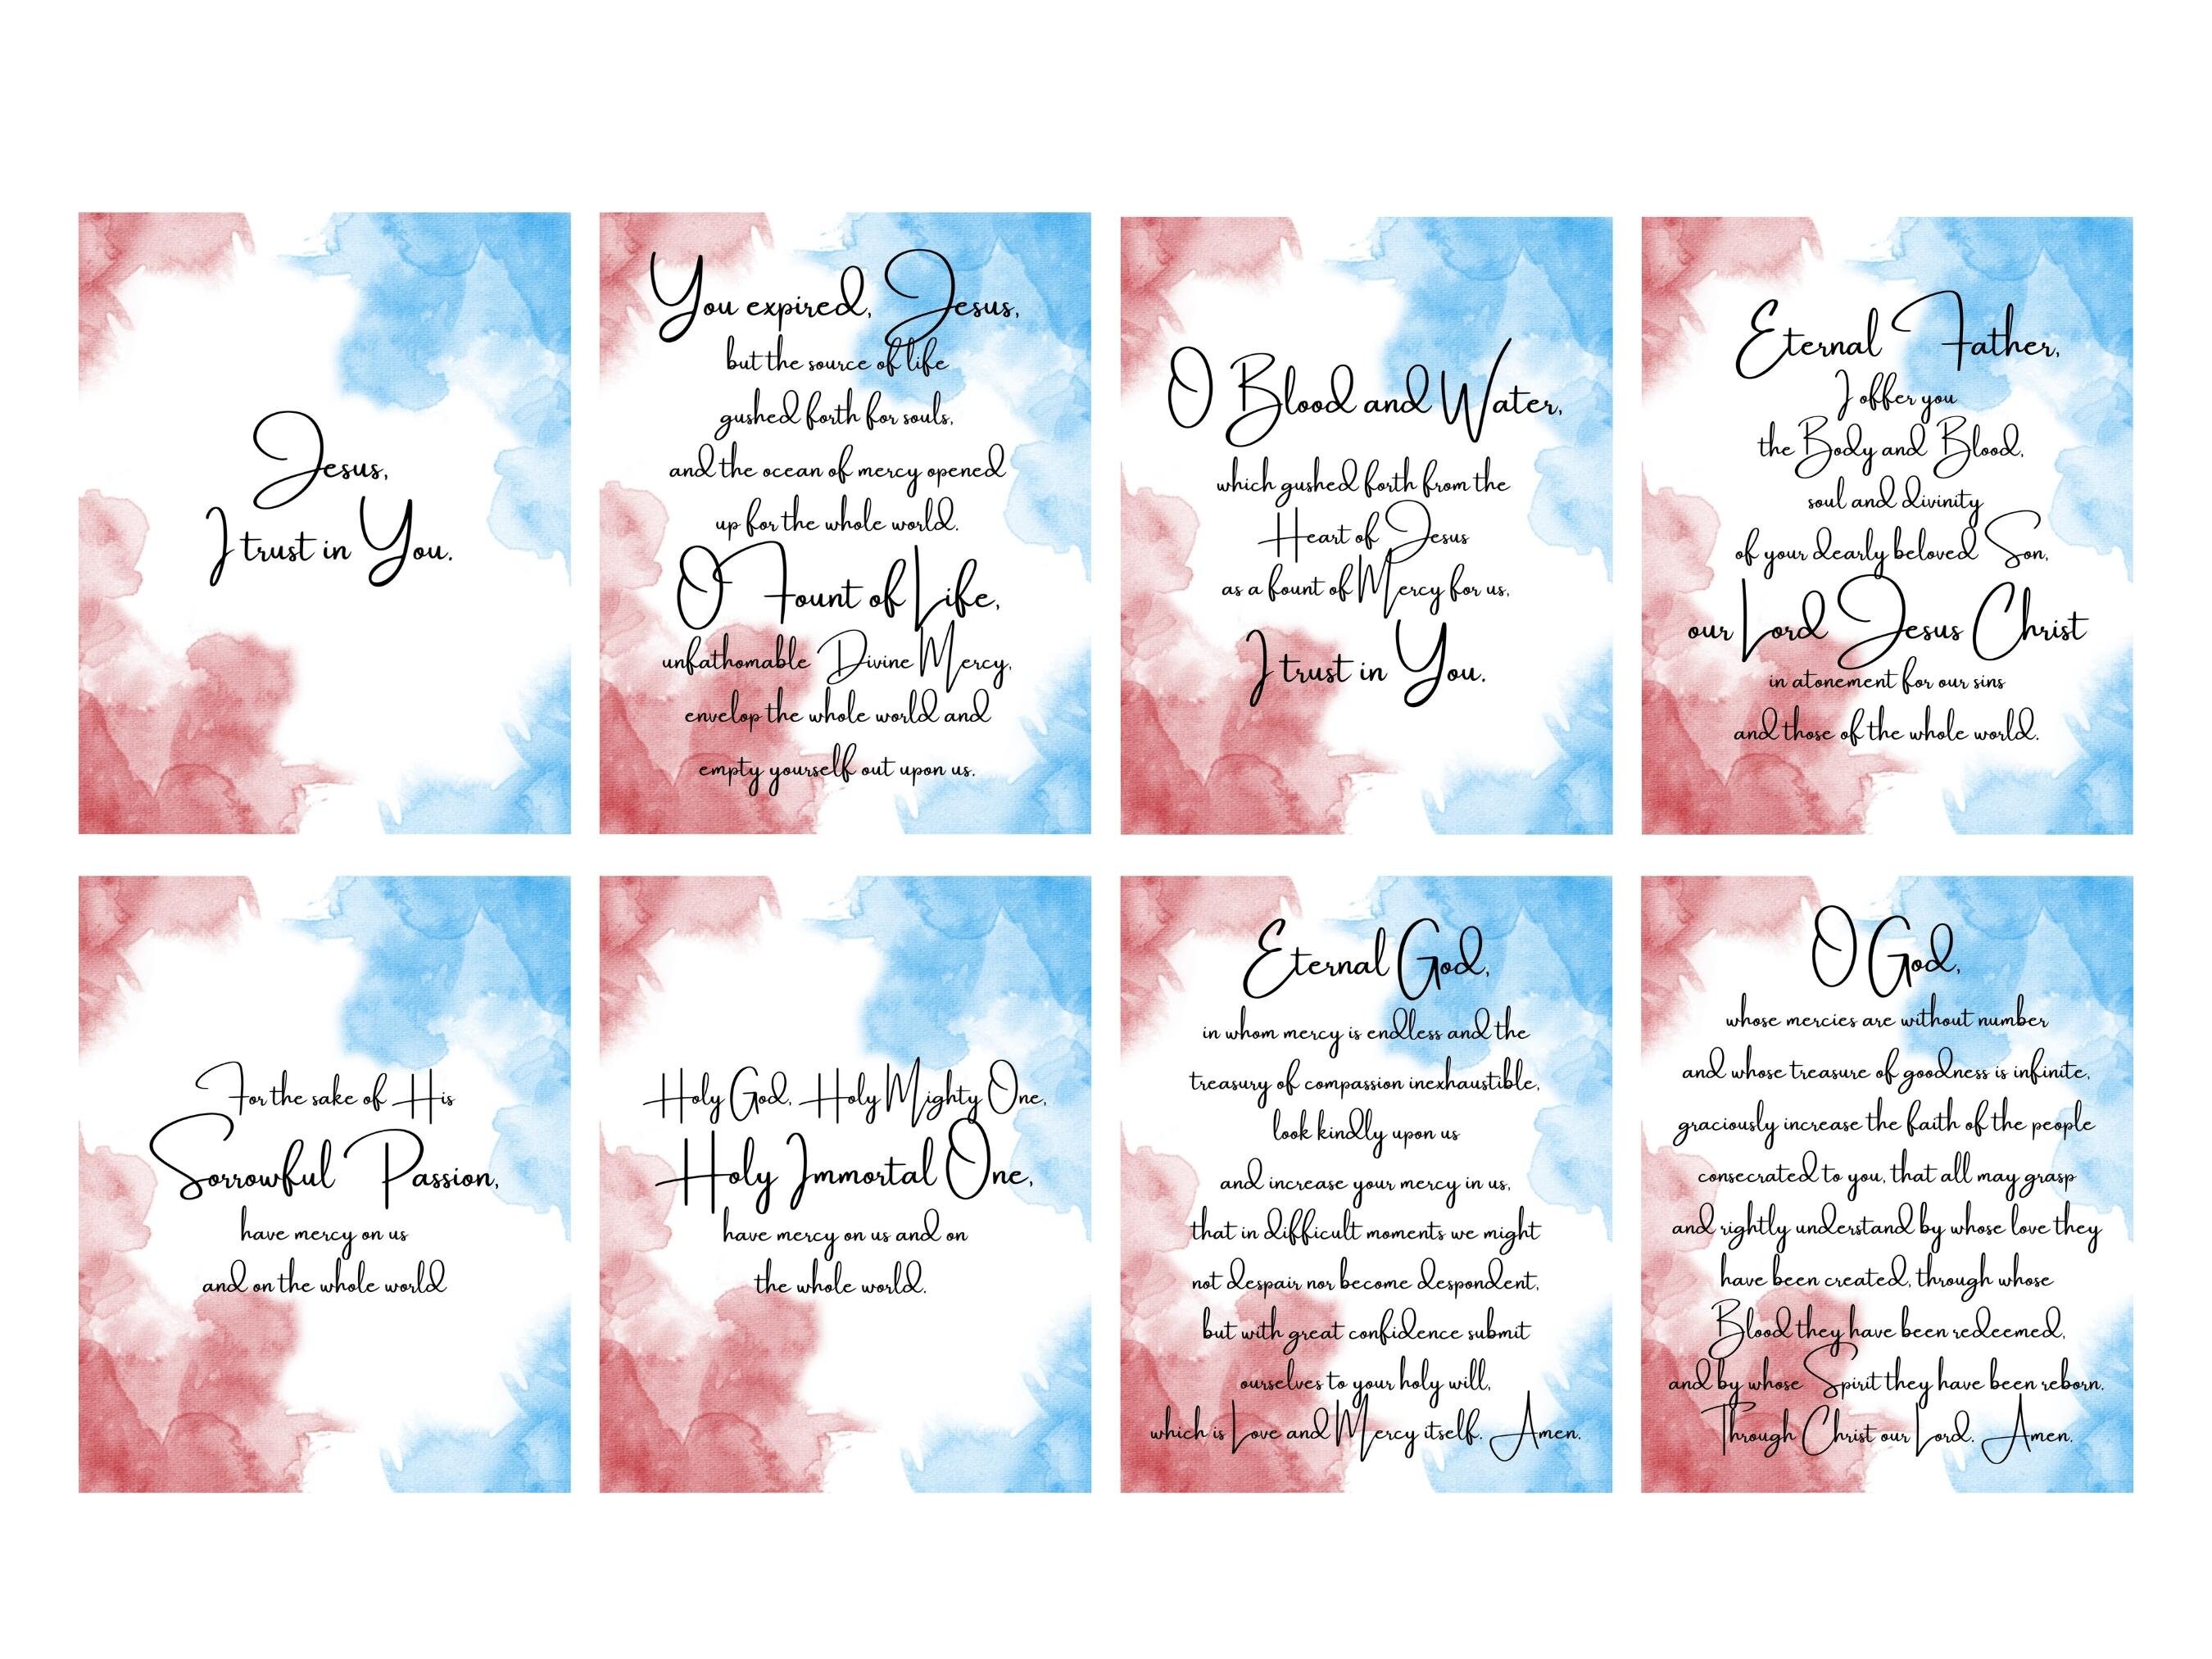 Jesus,
I trust in You.
You expired, Jesus,
but the source of life
gushed forth for souls,
and the ocean of mercy opened
up for the whole world.
O Fount of Life,
unfathomable Divine Mercy,
envelop the whole world and
empty yourself out upon us.
O Blood and Water,
which gushed forth from the
Heart of Jesus
as a fount of Mercy for us,
I trust in You.
Eternal Father,
I offer you
the Body and Blood,
soul and divinity
of your dearly beloved Son,
our Lord Jesus Christ
in atonement for our sins
and those of the whole world.
For the sake of His
Sorrowful Passion,
have mercy on us
and on the whole world
Holy God, Holy Mighty One,
Holy Immortal One,
have mercy on us and on
the whole world.
Eternal God,
in whom mercy is endless and the
treasury of compassion inexhaustible,
look kindly upon us
and increase your mercy in us,
that in difficult moments we might
not despair nor become despondent,
but with great confidence submit
ourselves to your holy will,
which is Love and Mercy itself. Amen.
O God,
whose mercies are without number
and whose treasure of goodness is infinite,
graciously increase the faith of the people
consecrated to you, that all may grasp
and rightly understand by whose love they
have been created, through whose
Blood they have been redeemed,
and by whose Spirit they have been reborn.
Through Christ our Lord. Amen.